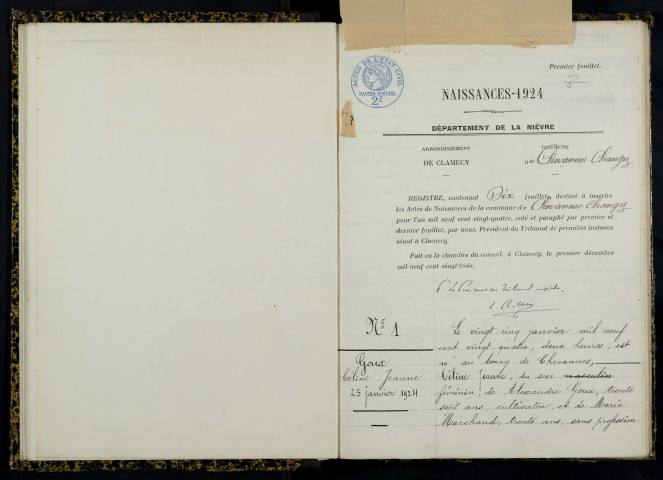 Premier feuillet.
ACTES DE L'ÉTAT CIVIL
PAPIER SPÉCIAL
2c
NAISSANCES-1924
DÉPARTEMENT DE LA NIÈVRE
ARRONDISSEMENT
DE CLAMECY
COMMUNE
de Chevannes-Changy
REGISTRE, contenant Dix feuillets, destiné à inscrire
les Actes de Naissances de la commune de Chevannes-Changy
pour l'an mil neuf cent vingt-quatre, coté et paraphé par premier et
dernier feuillet, par nous, Président du Tribunal de première instance
séant à Clamecy
Fait en la chambre du conseil, à Clamecy, le premier décembre
mil neuf cent vingt-trois.
P. Le Président du Tribunal
No 1
Goux
Céline Jeanne
25 janvier 1924
Le vingt cinq janvier mil neuf
cent vingt quatre, deux heures, est
né au bourg de Chevannes,
Céline Jeanne, du sexe masculin
féminin, de Alexandre Goux, trente
sept ans, cultivateur, et de Marie
Marchand, trente ans, sans profession